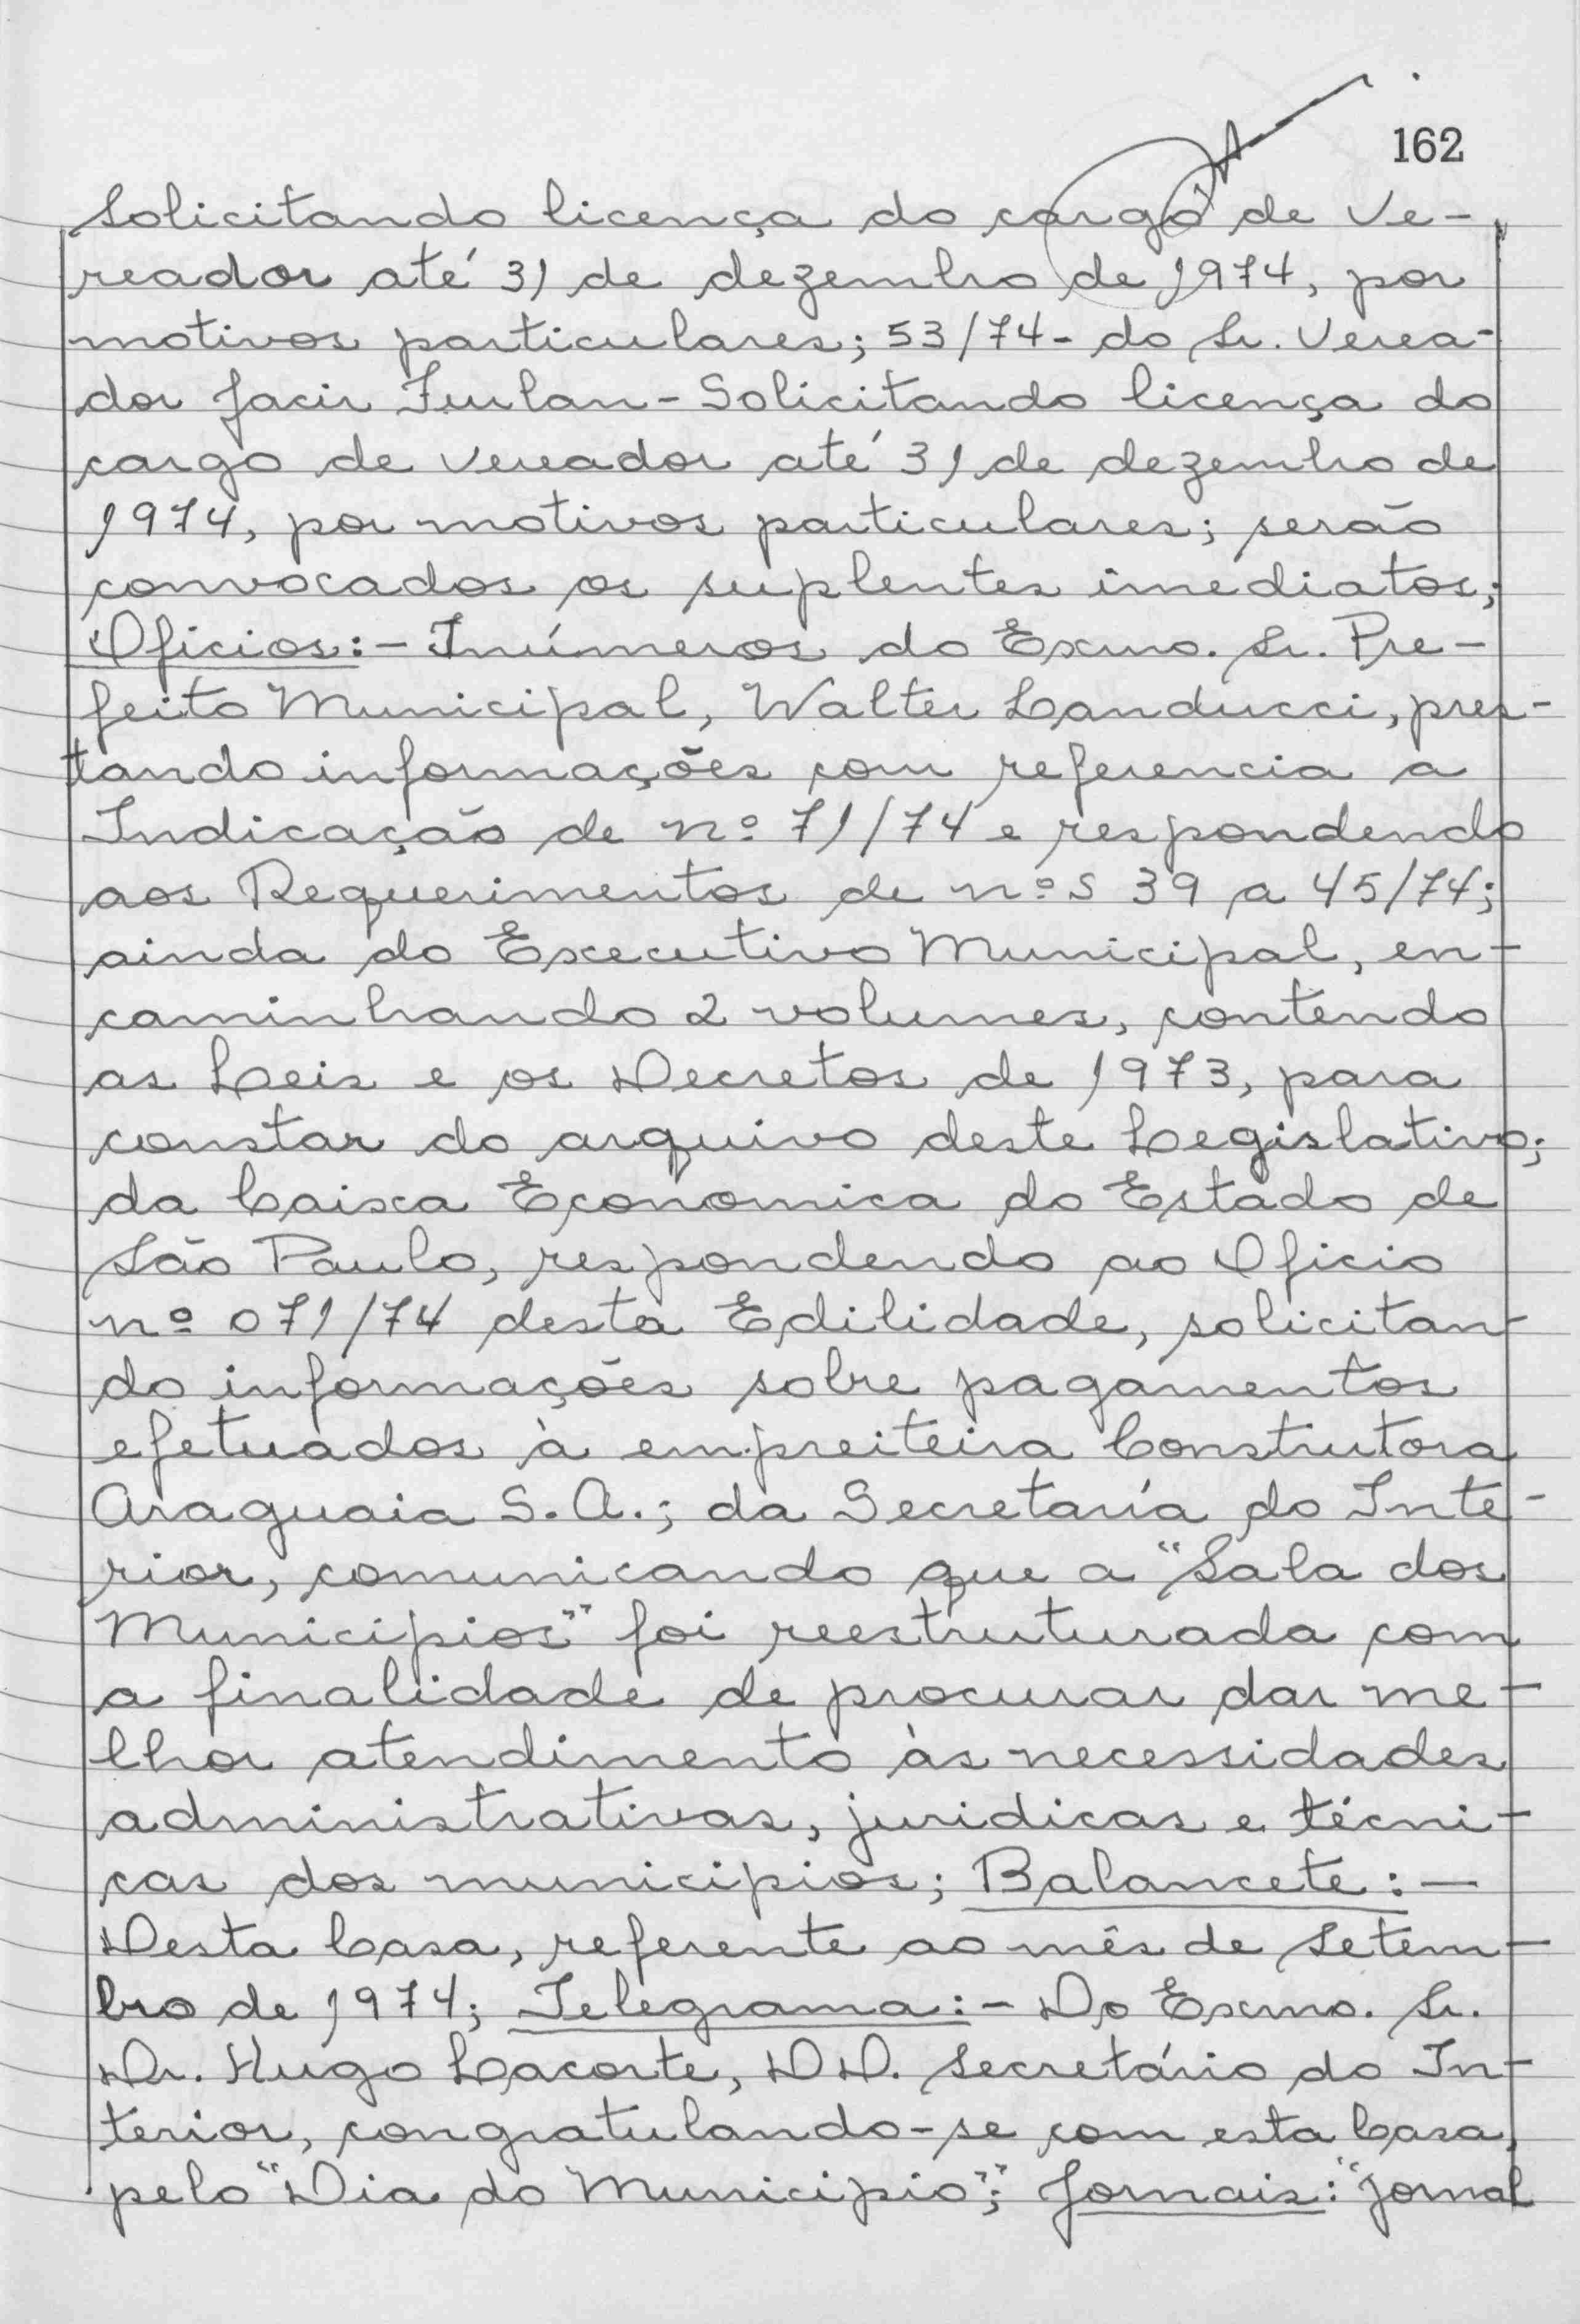 162
Solicitando licença do cargo de Ve-
reador até 31 de dezembro de 1974, por
motivos particulares; 53/74- do Sr. Verea-
dor Jacir Furlan - Solicitando licença do
cargo de vereador até 31 de dezembro de
1974, por motivos particulares; serão
convocados os suplentes imediatos;
Oficios:- Inúmeros do Exmo. Sr. Pre-
feito Municipal, Walter Landucci, pres-
tando informações com referencia a
Indicação de nº 71/74 e respondendo
aos Requerimentos de nºs 39 a 45/74;
ainda do Executivo Municipal, en-
caminhando 2 volumes, contendo
as Leis e os Decretos de 1973, para
constar do arquivo deste Legislativo;
da Caixa Economica do Estado de
São Paulo, respondendo ao Oficio
nº 071/74 desta Edilidade, solicitan-
do informações sobre pagamentos
efetuados à empreiteira Construtora
Araguaia S.A.; da Secretaría do Inte-
rior, comunicando que a "Sala dos
Municipios" foi reestruturada com
a finalidade de procurar dar me-
lhor atendimento às necessidades
administrativas, juridicas e técni-
cas dos municipios; Balancete:-
Desta Casa, referente ao mês de Setem-
bro de 1974; Telegrama:- Do Exmo. Sr.
Dr. Hugo Lacorte, DD. Secretário do In-
terior, congratulando-se com esta Casa,
pelo "Dia do Municipio"; Jornais: "Jornal